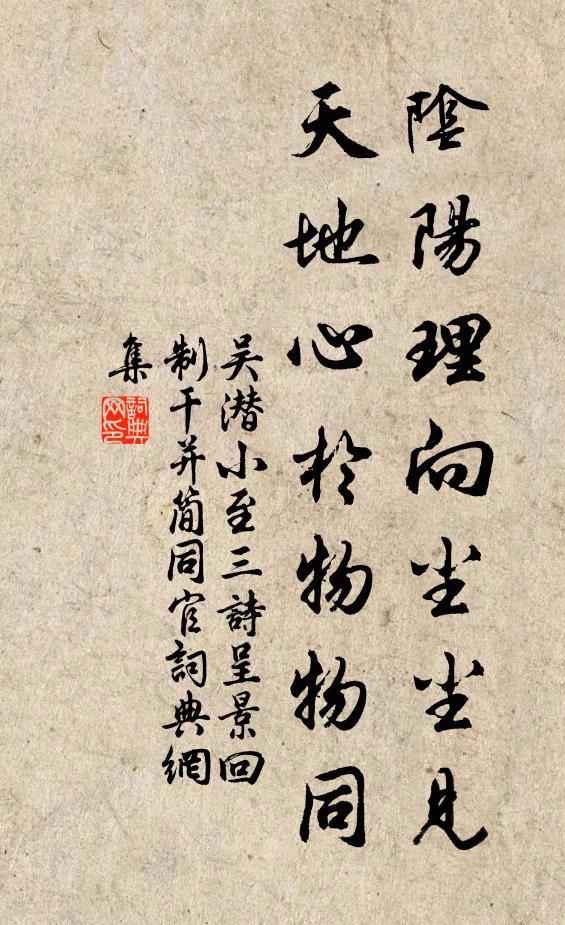 陰陽理向尘尘見
天地心於物物同
吴潜小至三詩呈景回
制干并简同官詞典網
集
詞典
网印